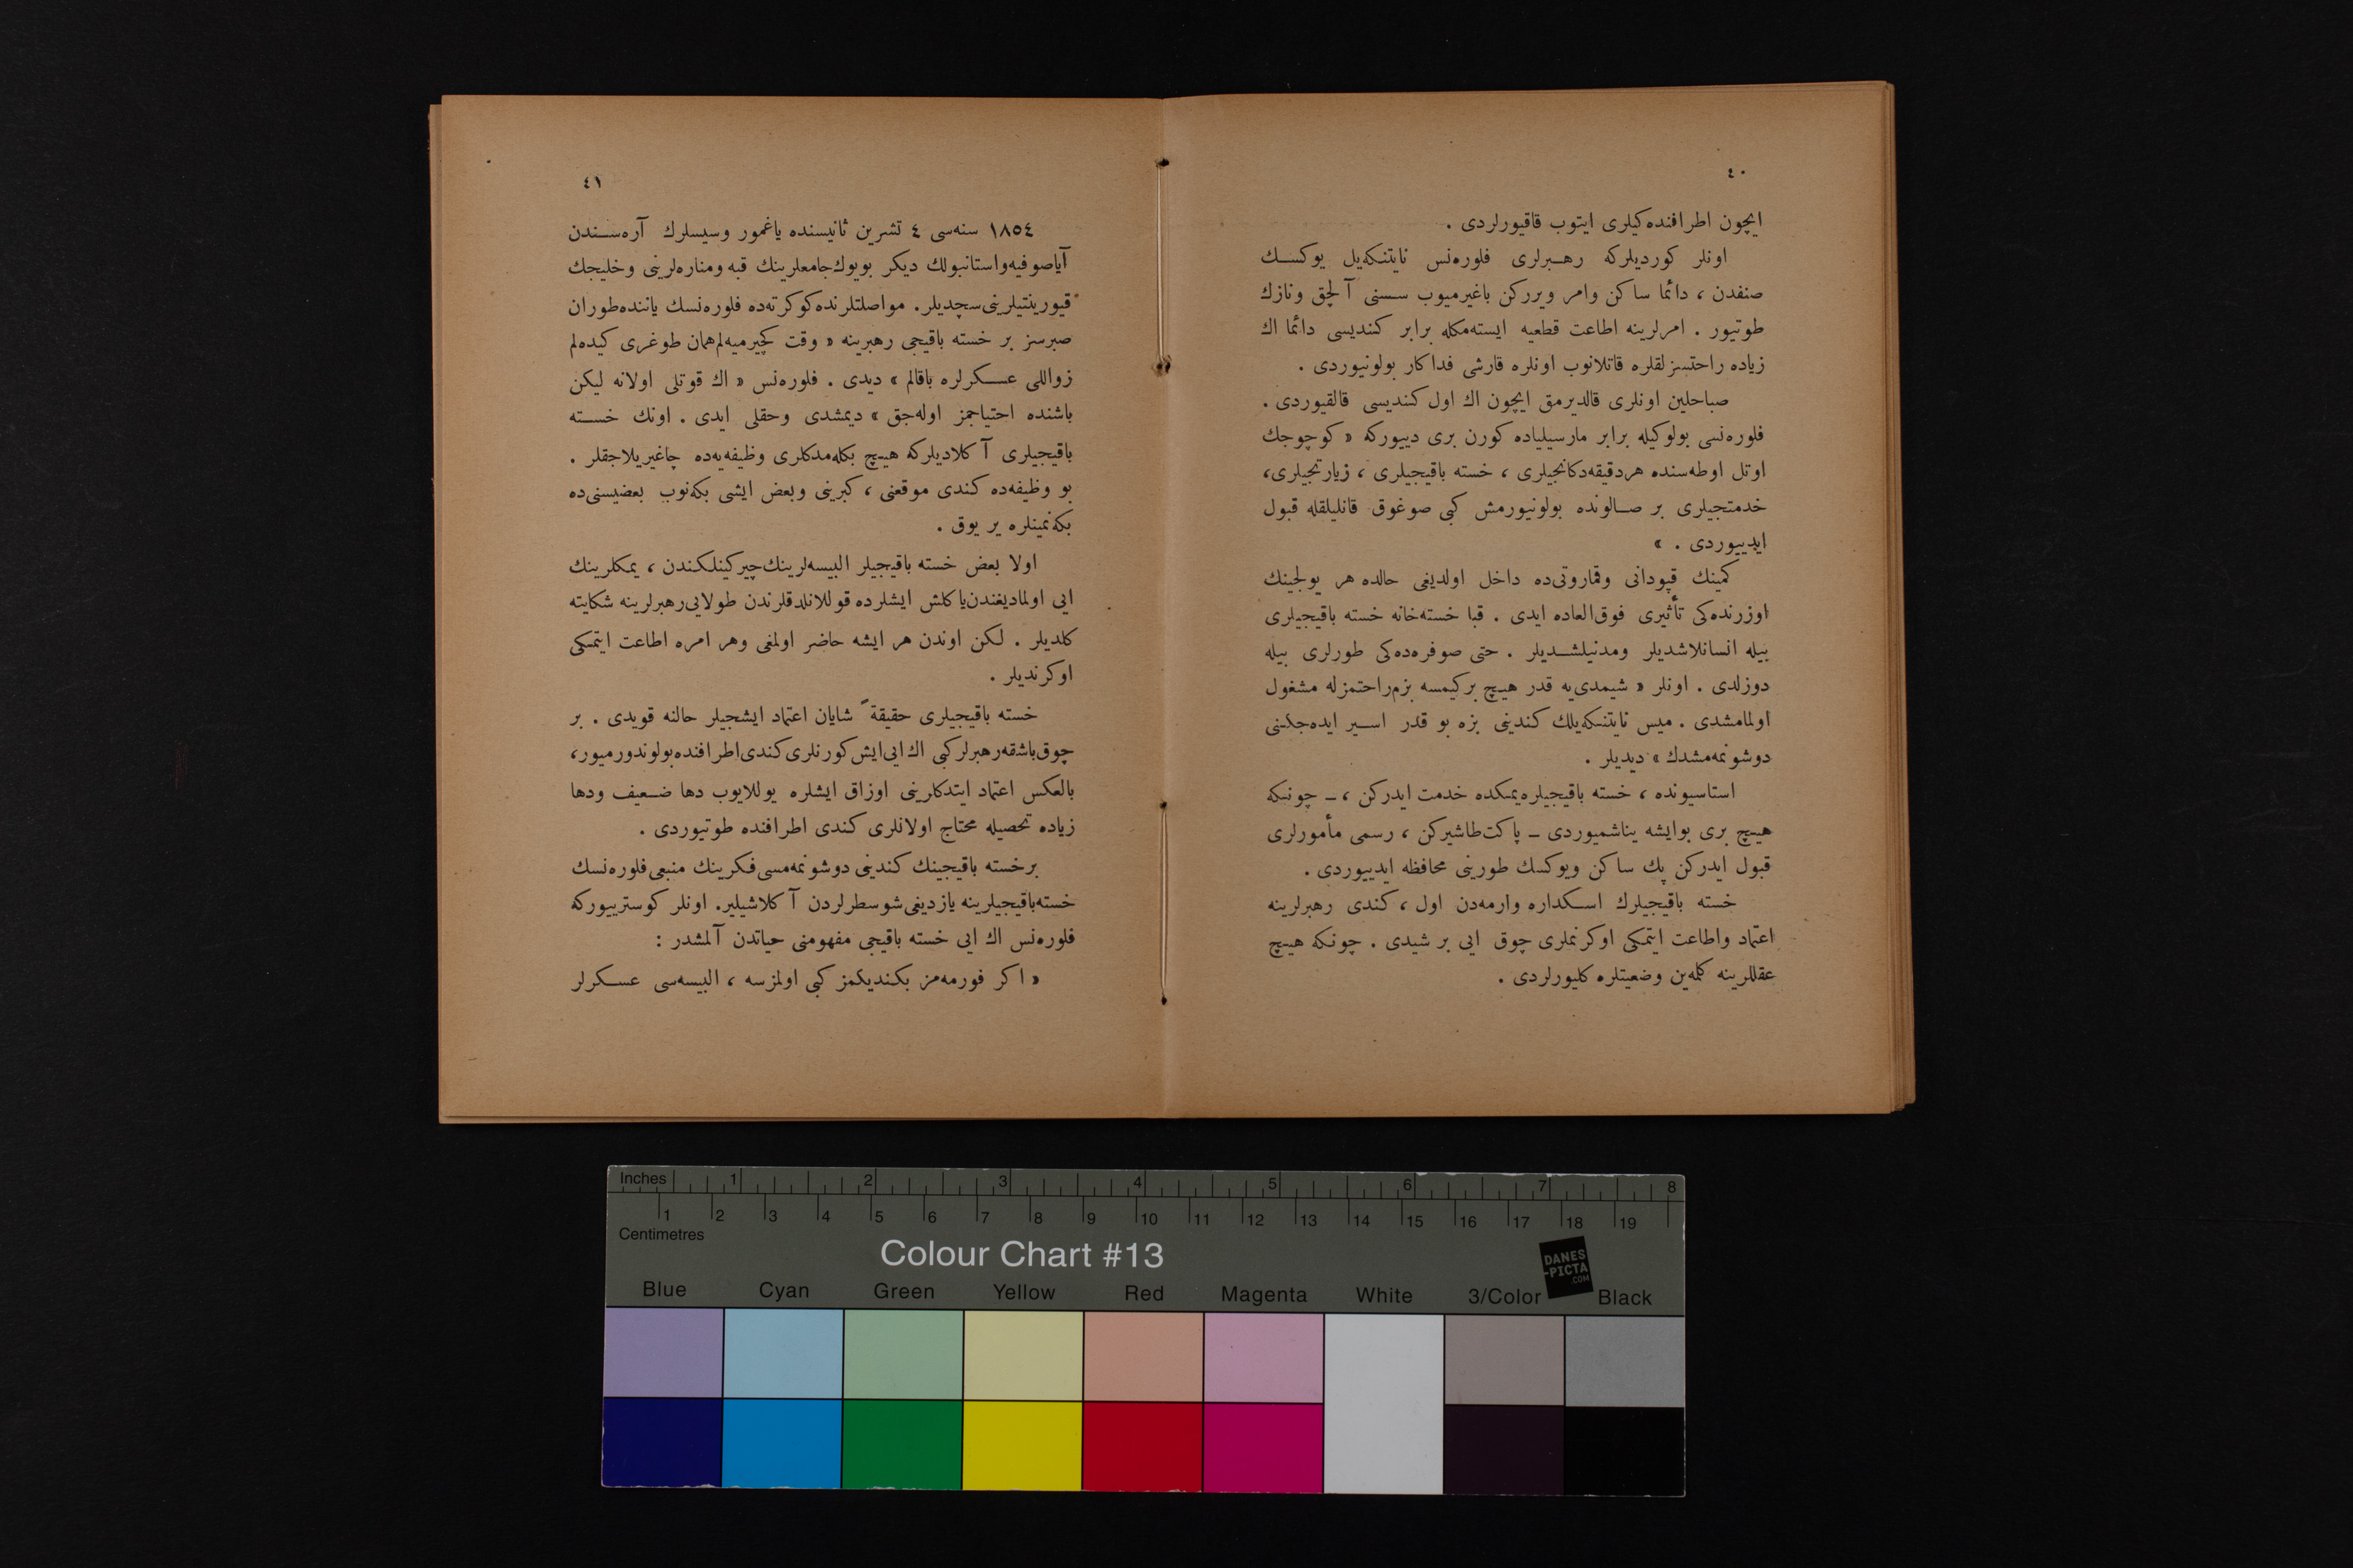 ٤٠
ایچون اطرافنده‌کیلری ایتوب قاقیورلردی .
اونلر کوردیلرکه رهبرلری فلوره‌نس نایتنکه‌یل یوکسك
صنفدن ، دائما ساکن وامر ویررکن باغیرمیوب سسنی آلچق ونازك
طوتیور . امرلرینه اطاعت قطعیه ایسته‌مکله برابر کندیسی دائما اك
زیاده راحتسزلقلره قاتلانوب اونلره قارشی فداکار بولونیوردی .
صباحلین اونلری قالدیرمق ایچون اك اول کندیسی قالقیوردی .
فلوره‌نسی بولوکیله برابر مارسیلیاده کورن بری دییورکه « کوچوجك
اوتل اوطه‌سنده هردقیقه‌دکانجیلری ، خسته باقیجیلری ، زیارتجیلری،
خدمتجیلری بر صالونده بولونیورمش کبی صوغوق قانلیلقله قبول
ایدییوردی . »
کمینك قپودانی وقماروتی‌ده داخل اولدیغی حالده هر یولجینك
اوزرنده‌کی تأثیری فوق‌العاده ایدی . قبا خسته‌خانه خسته باقیجیلری
بیله انسانلاشدیلر ومدنیلشدیلر . حتی صوفره‌ده‌کی طورلری بیله
دوزلدی . اونلر « شیمدی‌یه قدر هیچ برکیمسه بزم‌راحتمزله مشغول
اولمامشدی . میس نایتنکه‌یلك کندینی بزه بو قدر اسیر ایده‌جکنی
دوشونمه‌مشدك » دیدیلر .
استاسیونده ، خسته باقیجیلره‌یمکده خدمت ایدرکن ، ــ چونکه
هیچ بری بوایشه یناشمیوردی ــ پاکت‌طاشیرکن ، رسمی مأمورلری
قبول ایدرکن پك ساکن ویوکسك طورینی محافظه ایدییوردی .
خسته باقیجیلرك اسکداره وارمه‌دن اول ، کندی رهبرلرینه
اعتماد واطاعت ایتمکی اوکرنملری چوق ایی بر شیدی . چونکه هیچ
عقللرینه کلمه‌ین وضعیتلره کلیورلردی .
٤١
١٨٥٤ سنه‌سی ٤ تشرین ثانیسنده یاغمور وسیسلرك آره‌سندن
آیاصوفیه‌واستانبولك دیکر بویوك‌جامعلرینك قبه ومناره‌لرینی وخلیجك
قیورینتیلرینی‌سچدیلر. مواصلتلرنده‌کوکرته‌ده فلوره‌نسك یاننده‌طوران
صبرسز بر خسته باقیجی رهبرینه « وقت کچیرمیه‌لم‌همان طوغری کیده‌لم
زواللی عسکرلره باقالم » دیدی . فلوره‌نس « اك قوتلی اولانه لیکن
باشنده احتیاجمز اوله‌جق » دیمشدی وحقلی ایدی . اونك خسته
باقیجیلری آکلادیلرکه هیچ بکله‌مدکلری وظیفه‌یه‌ده چاغیریلاجقلر .
بو وظیفه‌ده کندی موقعنی ، کبرینی وبعض ایشی بکه‌نوب بعضیسنی‌ده
بکه‌نمینلره یر یوق .
اولا بعض خسته باقیجیلر البیسه‌لرینك‌چیرکینلکندن ، یمکلرینك
ایی اولمادیغندن‌یاکلش ایشلرده قوللانلدقلرندن طولایی‌رهبرلرینه شکایته
کلدیلر . لکن اوندن هر ایشه حاضر اولمغی وهر امره اطاعت ایتمکی
اوکرندیلر .
خسته باقیجیلری حقیقةً شایان اعتماد ایشجیلر حالنه قویدی . بر
چوق‌باشقه‌رهبرلرکبی اك ایی‌ایش‌کورنلری‌کندی‌اطرافنده‌بولوندورمیور،
بالعکس اعتماد ایتدکلرینی اوزاق ایشلره یوللایوب دها ضعیف ودها
زیاده تحصیله محتاج اولانلری کندی اطرافنده طوتیوردی .
برخسته باقیجینك کندینی دوشونمه‌مسی‌فکرینك منبعی‌فلوره‌نسك
خسته‌باقیجیلرینه یازدیغی‌شوسطرلردن آکلاشیلیر. اونلر کوسترییورکه
فلوره‌نس اك ایی خسته باقیجی مفهومنی حیاتدن آلمشدر :
« اکر فورمه‌مز بکندیکمز کبی اولمزسه ، البیسه‌سی عسکرلر
Inches 1 2 3 4 5 6 7 8
1 2 3 4 5 6 7 8 9 10 11 12 13 14 15 16 17 18 19
Centimetres
Colour Chart #13
DANES
-PICTA
.COM
Blue Cyan Green Yellow Red Magenta White 3/Color Black